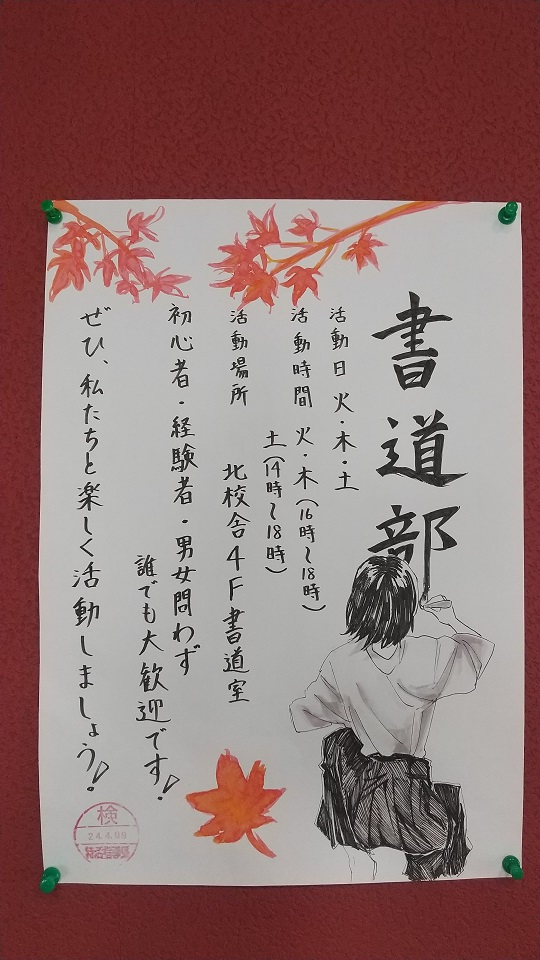 書道部
活動日 火・木・土
活動時間 火・木(16時〜18時)
土(14時〜18時)
活動場所 北校舎4F書道室
初心者・経験者・男女問わず
誰でも大歓迎です!
ぜひ、私たちと楽しく活動しましょう!
検
24.4.09